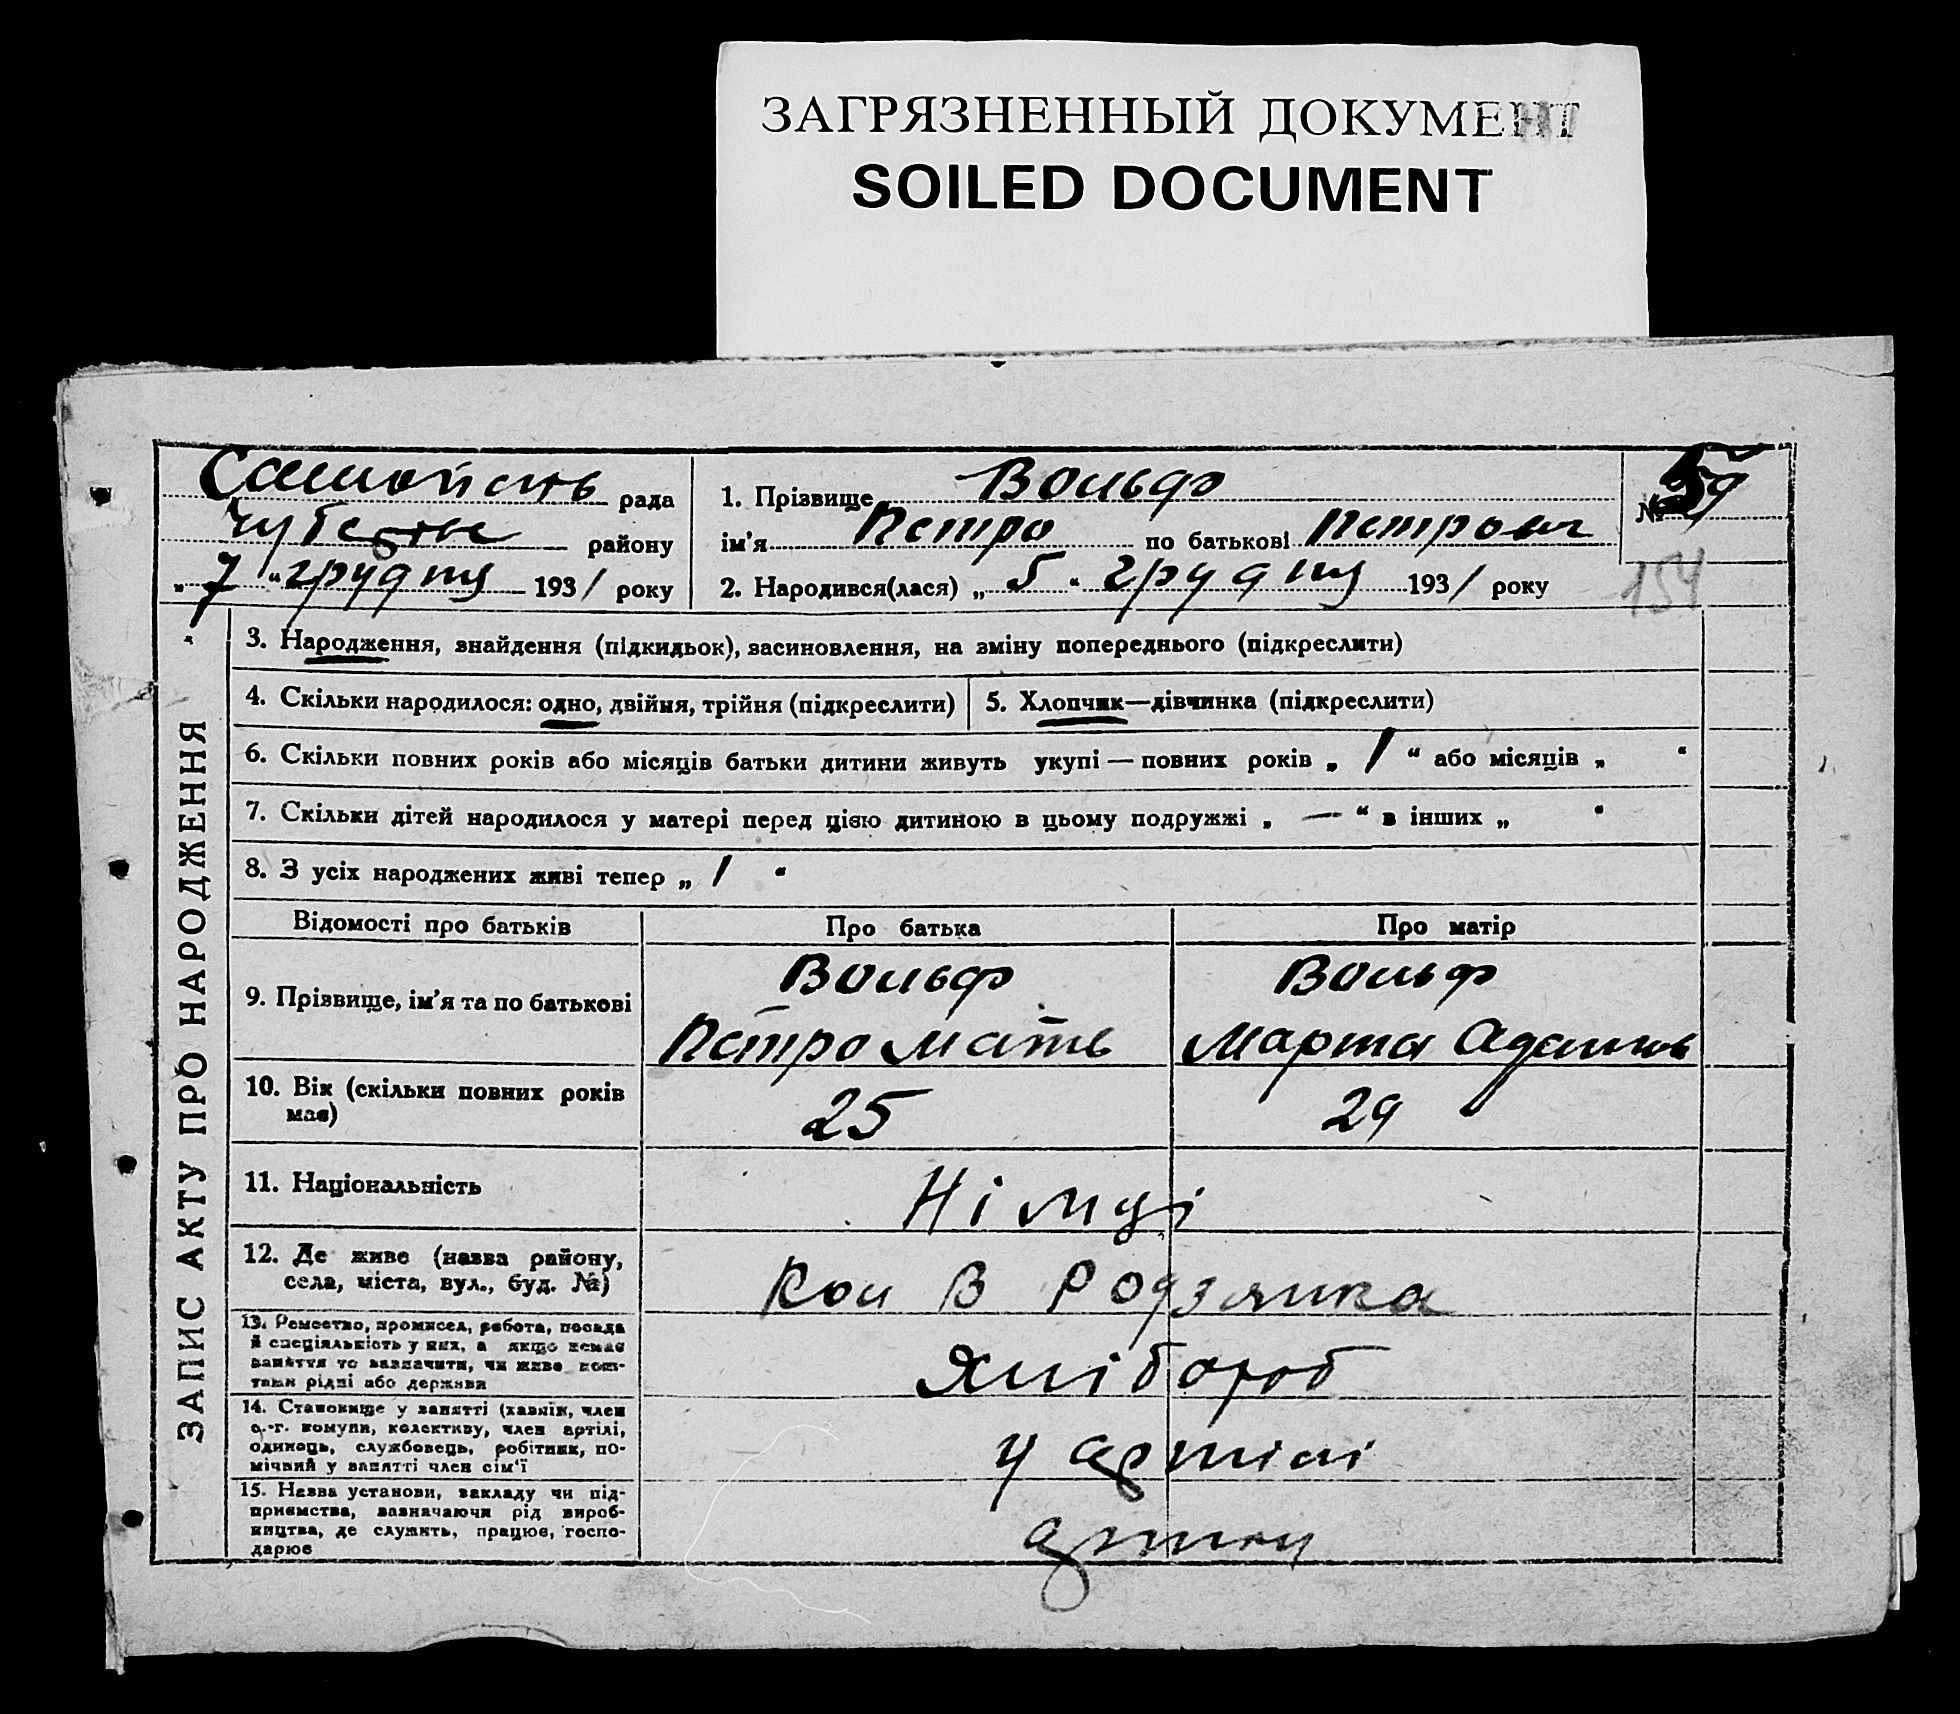 ЗАГРЯЗНЕННЫЙ ДОКУМЕНТ
SOILED DOCUMENT
рада
району
„7“ грудня 1931 року
1. Прізвище Вольф
ім'я Петро по батькові Петрович
2. Народився(лася) „5“ грудня 1931 року
№ 59
154
ЗАПИС АКТУ ПРО НАРОДЖЕННЯ
3. Народження, знайдення (підкидьок), засиновлення, на зміну попереднього (підкреслити)
4. Скільки народилося: одно, двійня, трійня (підкреслити)
5. Хлопчик—дівчинка (підкреслити)
6. Скільки повних років або місяців батьки дитини живуть укупі — повних років „1“ або місяців „ “
7. Скільки дітей народилося у матері перед цією дитиною в цьому подружжі „—“ в інших „ “
8. З усіх народжених живі тепер „1“
Відомості про батьків
Про батька
Про матір
9. Прізвище, ім'я та по батькові
Вольф
Петро Матв
Вольф
Марта Адамов
10. Вік (скільки повних років
має)
25
29
11. Національність
Німці
12. Де живе (назва району,
села, міста, вул., буд. №)
Кол В Родзянка
13. Ремество, промисел, робота, посада
й спеціяльність у них, а якщо немає
заняття то зазначити, чи живе кош-
тами рідні або держави
Хлібороб
14. Становище у занятті (хазяїн, член
с.-г. комуни, колективу, член артілі,
одинець, службовець, робітник, по-
мічний у занятті член сім'ї
у артілі
15. Назва установи, закладу чи під-
приємства, зазначаючи рід вироб-
ництва, де служить, працює, госпо-
дарює